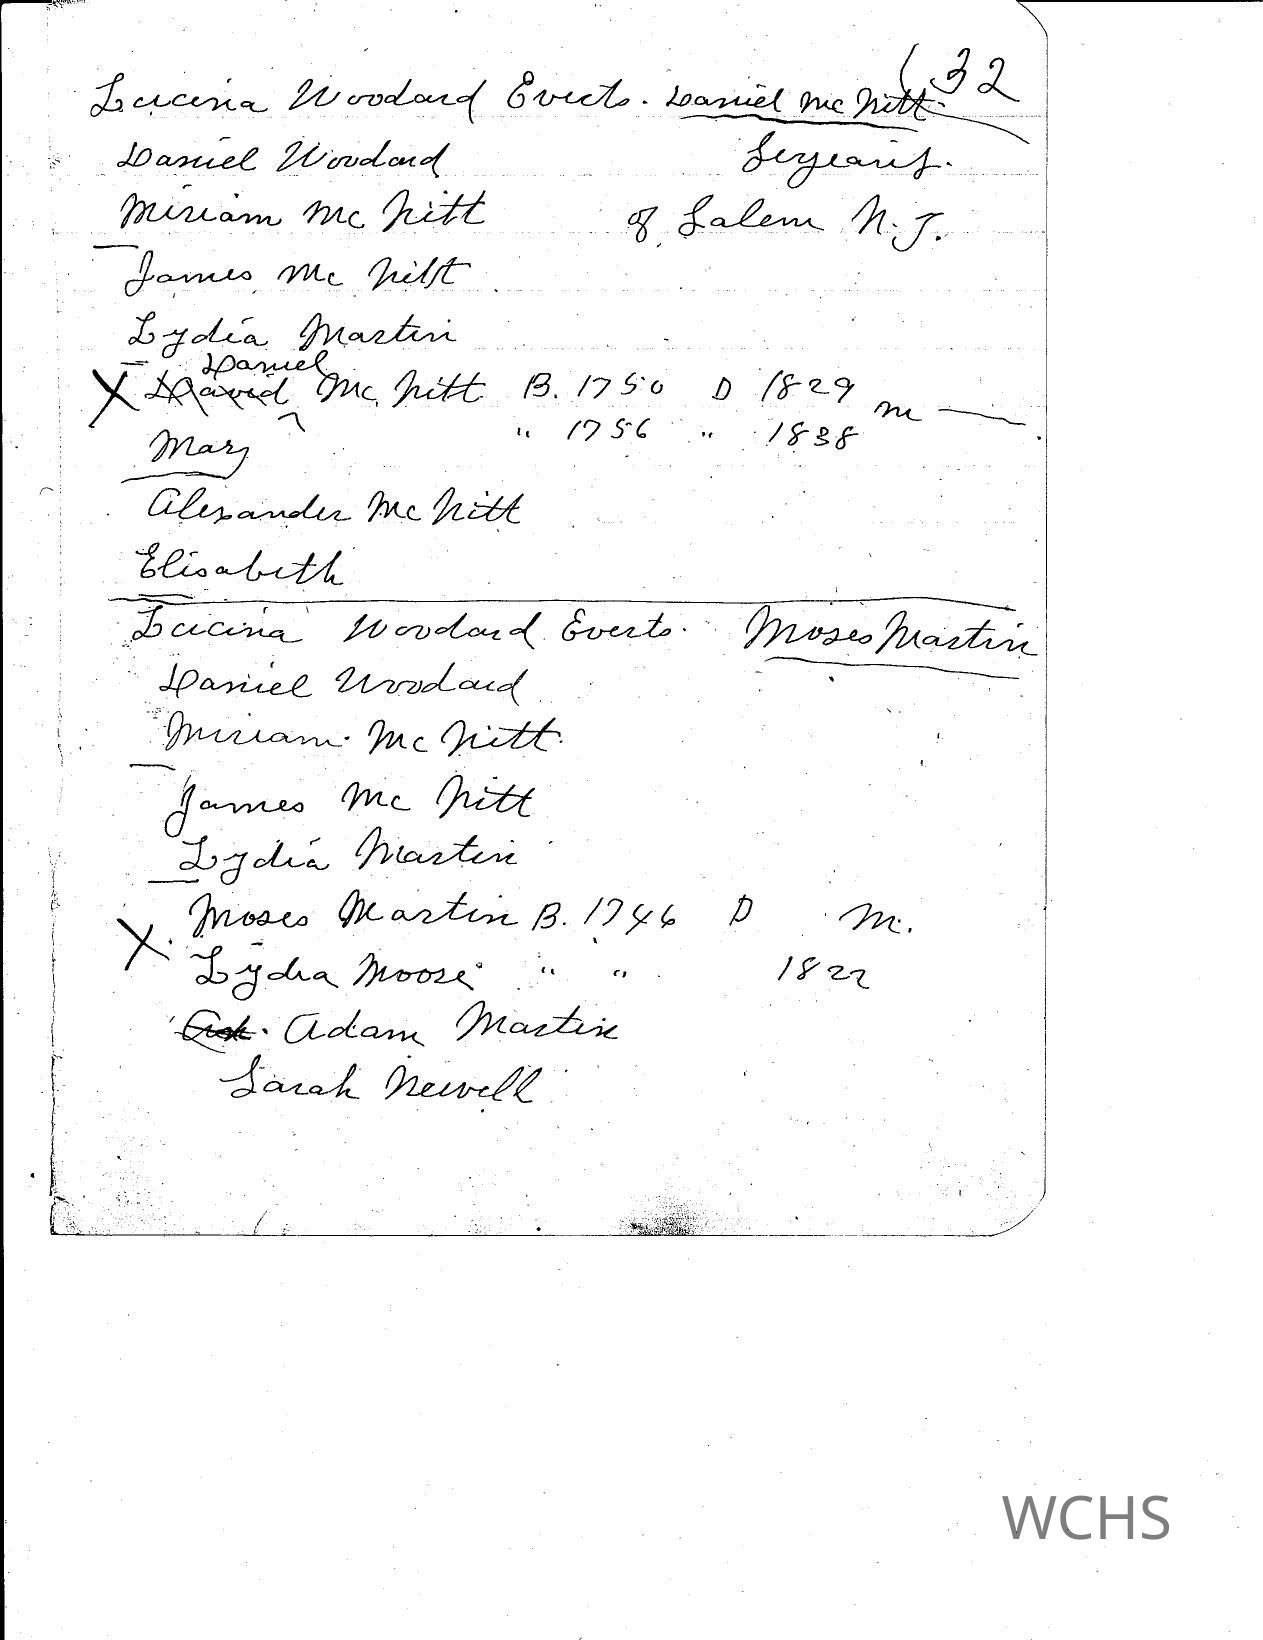 32
Lucina Woodard Everts. Daniel McNitt.
Daniel Woodard Sergeant.
Miriam McNitt of Salem N.J.
James McNitt
Lydia Martin
Daniel
X David McNitt B. 1750 D 1829 m —
Mary " 1756 " 1838
Alexander McNitt
Elisabeth
Lucina Woodard Everts. Moses Martin
Daniel Woodard
Miriam McNitt.
James McNitt
Lydia Martin
X. Moses Martin B. 1746 D M.
Lydia Moose " " 1822
Adam Martin
Sarah Newell
WCHS